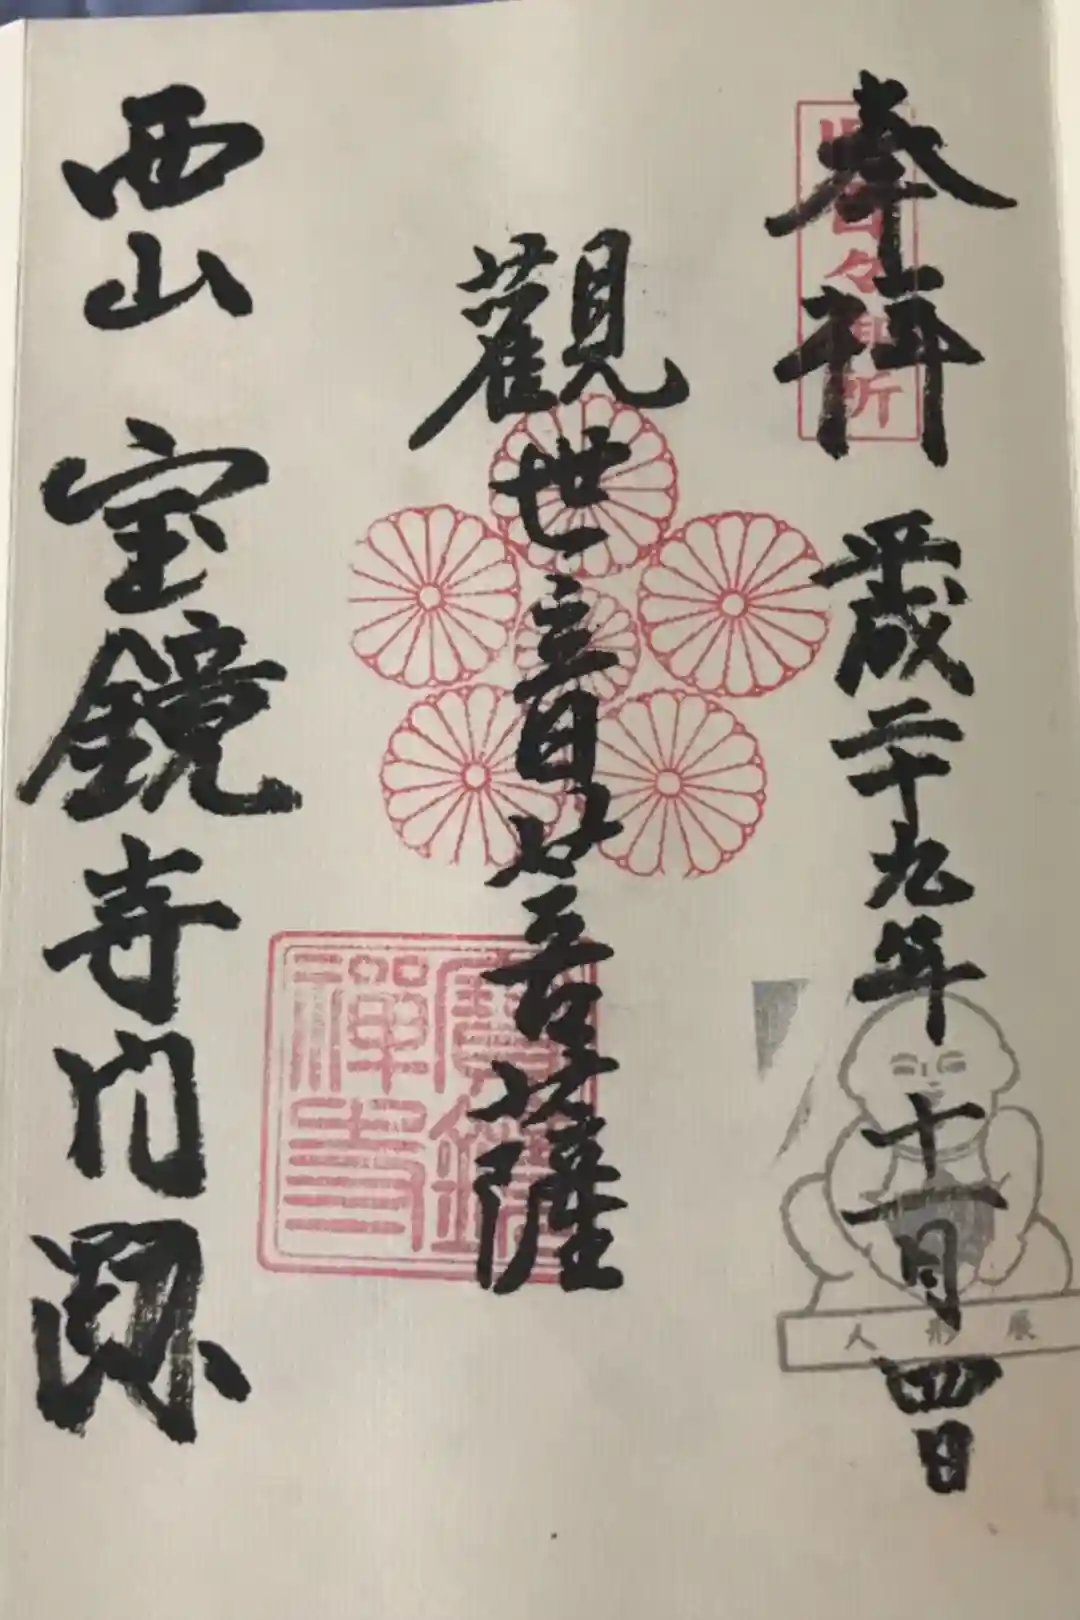 奉拝 平成二十九年十一月四日
旧百々御所
觀世音菩薩
寶鏡禪寺
西山 宝鏡寺門跡
人形展